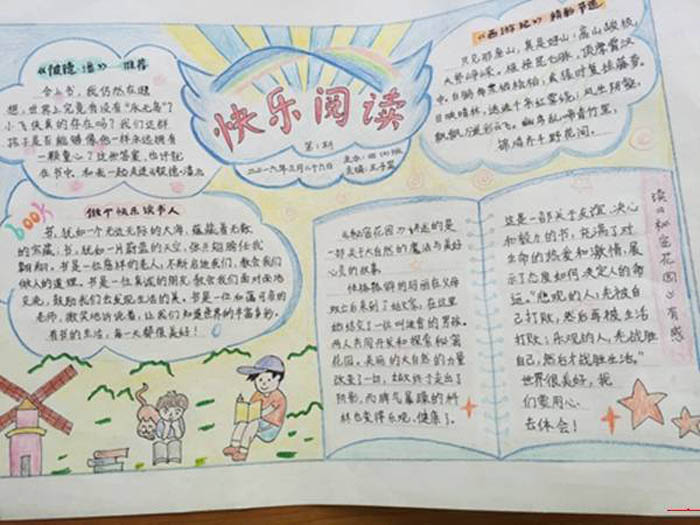 《彼德·潘》 推荐
合上书，我仍然在瞎
想，世界上究竟有没有“永无岛”？
小飞侠真的存在吗？我们这群
孩子是否能够像他一样永远拥有
一颗童心？这些答案，也许就
在书中，和我一起走进《彼德·潘》
快乐阅读
第1期
二〇一六年三月二十六日
《西游记》 精彩节选
只见那座山，真是好山：高山峻极，
大势峥嵘。根接昆仑脉，顶摩霄汉
中。
日映晴林，
飘飘万迭彩云飞。幽鸟乱啼青竹里，
锦鸡齐斗野花间。
book
做个快乐读书人
书，犹如一个无边无际的大海，蕴藏着无数
的宝藏；书，犹如一片蔚蓝的天空，张开翅膀任我
翱翔。书是一位慈祥的老人，不断启迪我们，教会我们
做人的道理。书是一位真诚的朋友，教会我们面对面地
交流，鼓励我们去发现生活的美。书是一位和蔼可亲的
老师，微笑地诉说着，让我们知道世界的丰富多彩。
有书的生活，每一天都很美好！
《秘密花园》讲述的是
一部关于大自然的魔法与美好
心灵的故事。
性格孤僻的玛丽在父母
双亡后来到了姑父家，在这里
她结交了一位叫迪肯的男孩。
两人共同开发和探索秘密
花园。美丽的大自然的力量
改变了一切，姑父终于走出了
阴影，而脾气暴躁的科
林也变得乐观、健康了。
读《秘密花园》有感
这是一部关于友谊、决心
和毅力的书，充满了对
生命的热爱和激情，展
示了态度如何决定人的命
运。“悲观的人，先被自
己打败，然后再被生活
打败；乐观的人，先战胜
自己，然后才战胜生活。”
世界很美好，我
们要用心
去体会！